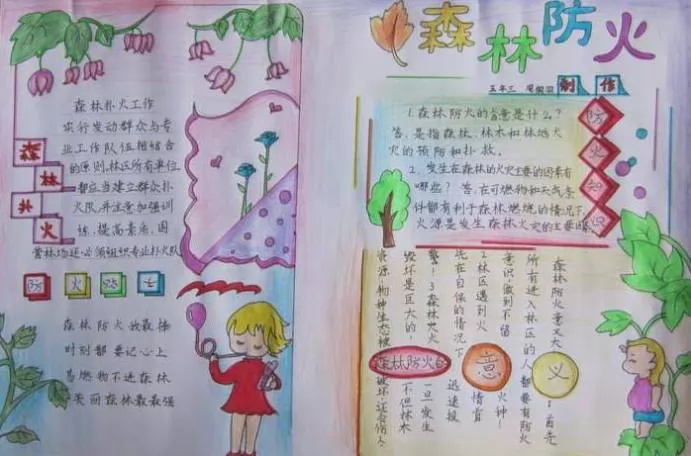 森林防火
五年三
制作
森林扑火工作
实行发动群众与专
业工作队伍相结合
的原则,林区所有单位
都应当建立群众扑
火队,并注意加强训
练,提高素质,国
营林场还必须组织专业扑火队
森林扑火
防火
森林防火我最棒
时刻都要记心上
易燃物不进森林
美丽森林最最强
1.森林防火的含意是什么?
答:是指森林、林木和林地火
火的预防和扑救。
2.发生在森林的火灾主要的因素有
哪些?答:在可燃物和天气条
件都有利于森林燃烧的情况下,
火源是发生森林火灾的主要因
防火知识
森林防火意义大
:首先
所有进入林区的人都要有防火
意识,做到不留
火种!
2林区遇到火
情首
先在自保的情况下
迅速报
警!3森林火火
一旦发生
毁坏是巨大的,
不但林木
资源,物种生态被
破坏,还会
森林防火的
意
义